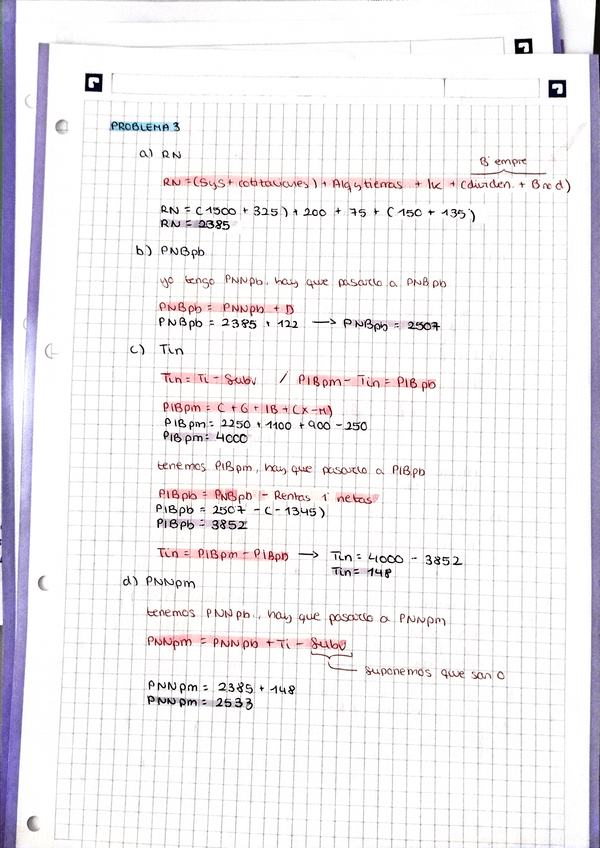 PROBLEMA 3
a) RN
Bº empre
RN = (SyS + cotitaciones) + Alq y tierras + ik + (dividen. + B no d)
RN = (1500 + 325) + 200 + 75 + (150 + 135)
RN = 2385
b) PNBpb
yo tengo PNNpb, hay que pasarlo a PNBpb
PNBpb = PNNpb + D
PNBpb = 2385 + 122 → PNBpb = 2507
c) Tin
Tin = Ti - Subv / PIBpm - Tin = PIBpb
PIBpm = C + G + IB + (X-M)
PIBpm = 2250 + 1100 + 900 - 250
PIBpm = 4000
tenemos PIBpm, hay que pasarlo a PIBpb
PIBpb = PNBpb - Rentas 1º netas
PIBpb = 2507 - (-1345)
PIBpb = 3852
Tin = PIBpm - PIBpb → Tin = 4000 - 3852
Tin = 148
d) PNNpm
tenemos PNNpb, hay que pasarlo a PNNpm
PNNpm = PNNpb + Ti - Subv
suponemos que son 0
PNNpm = 2385 + 148
PNNpm = 2533